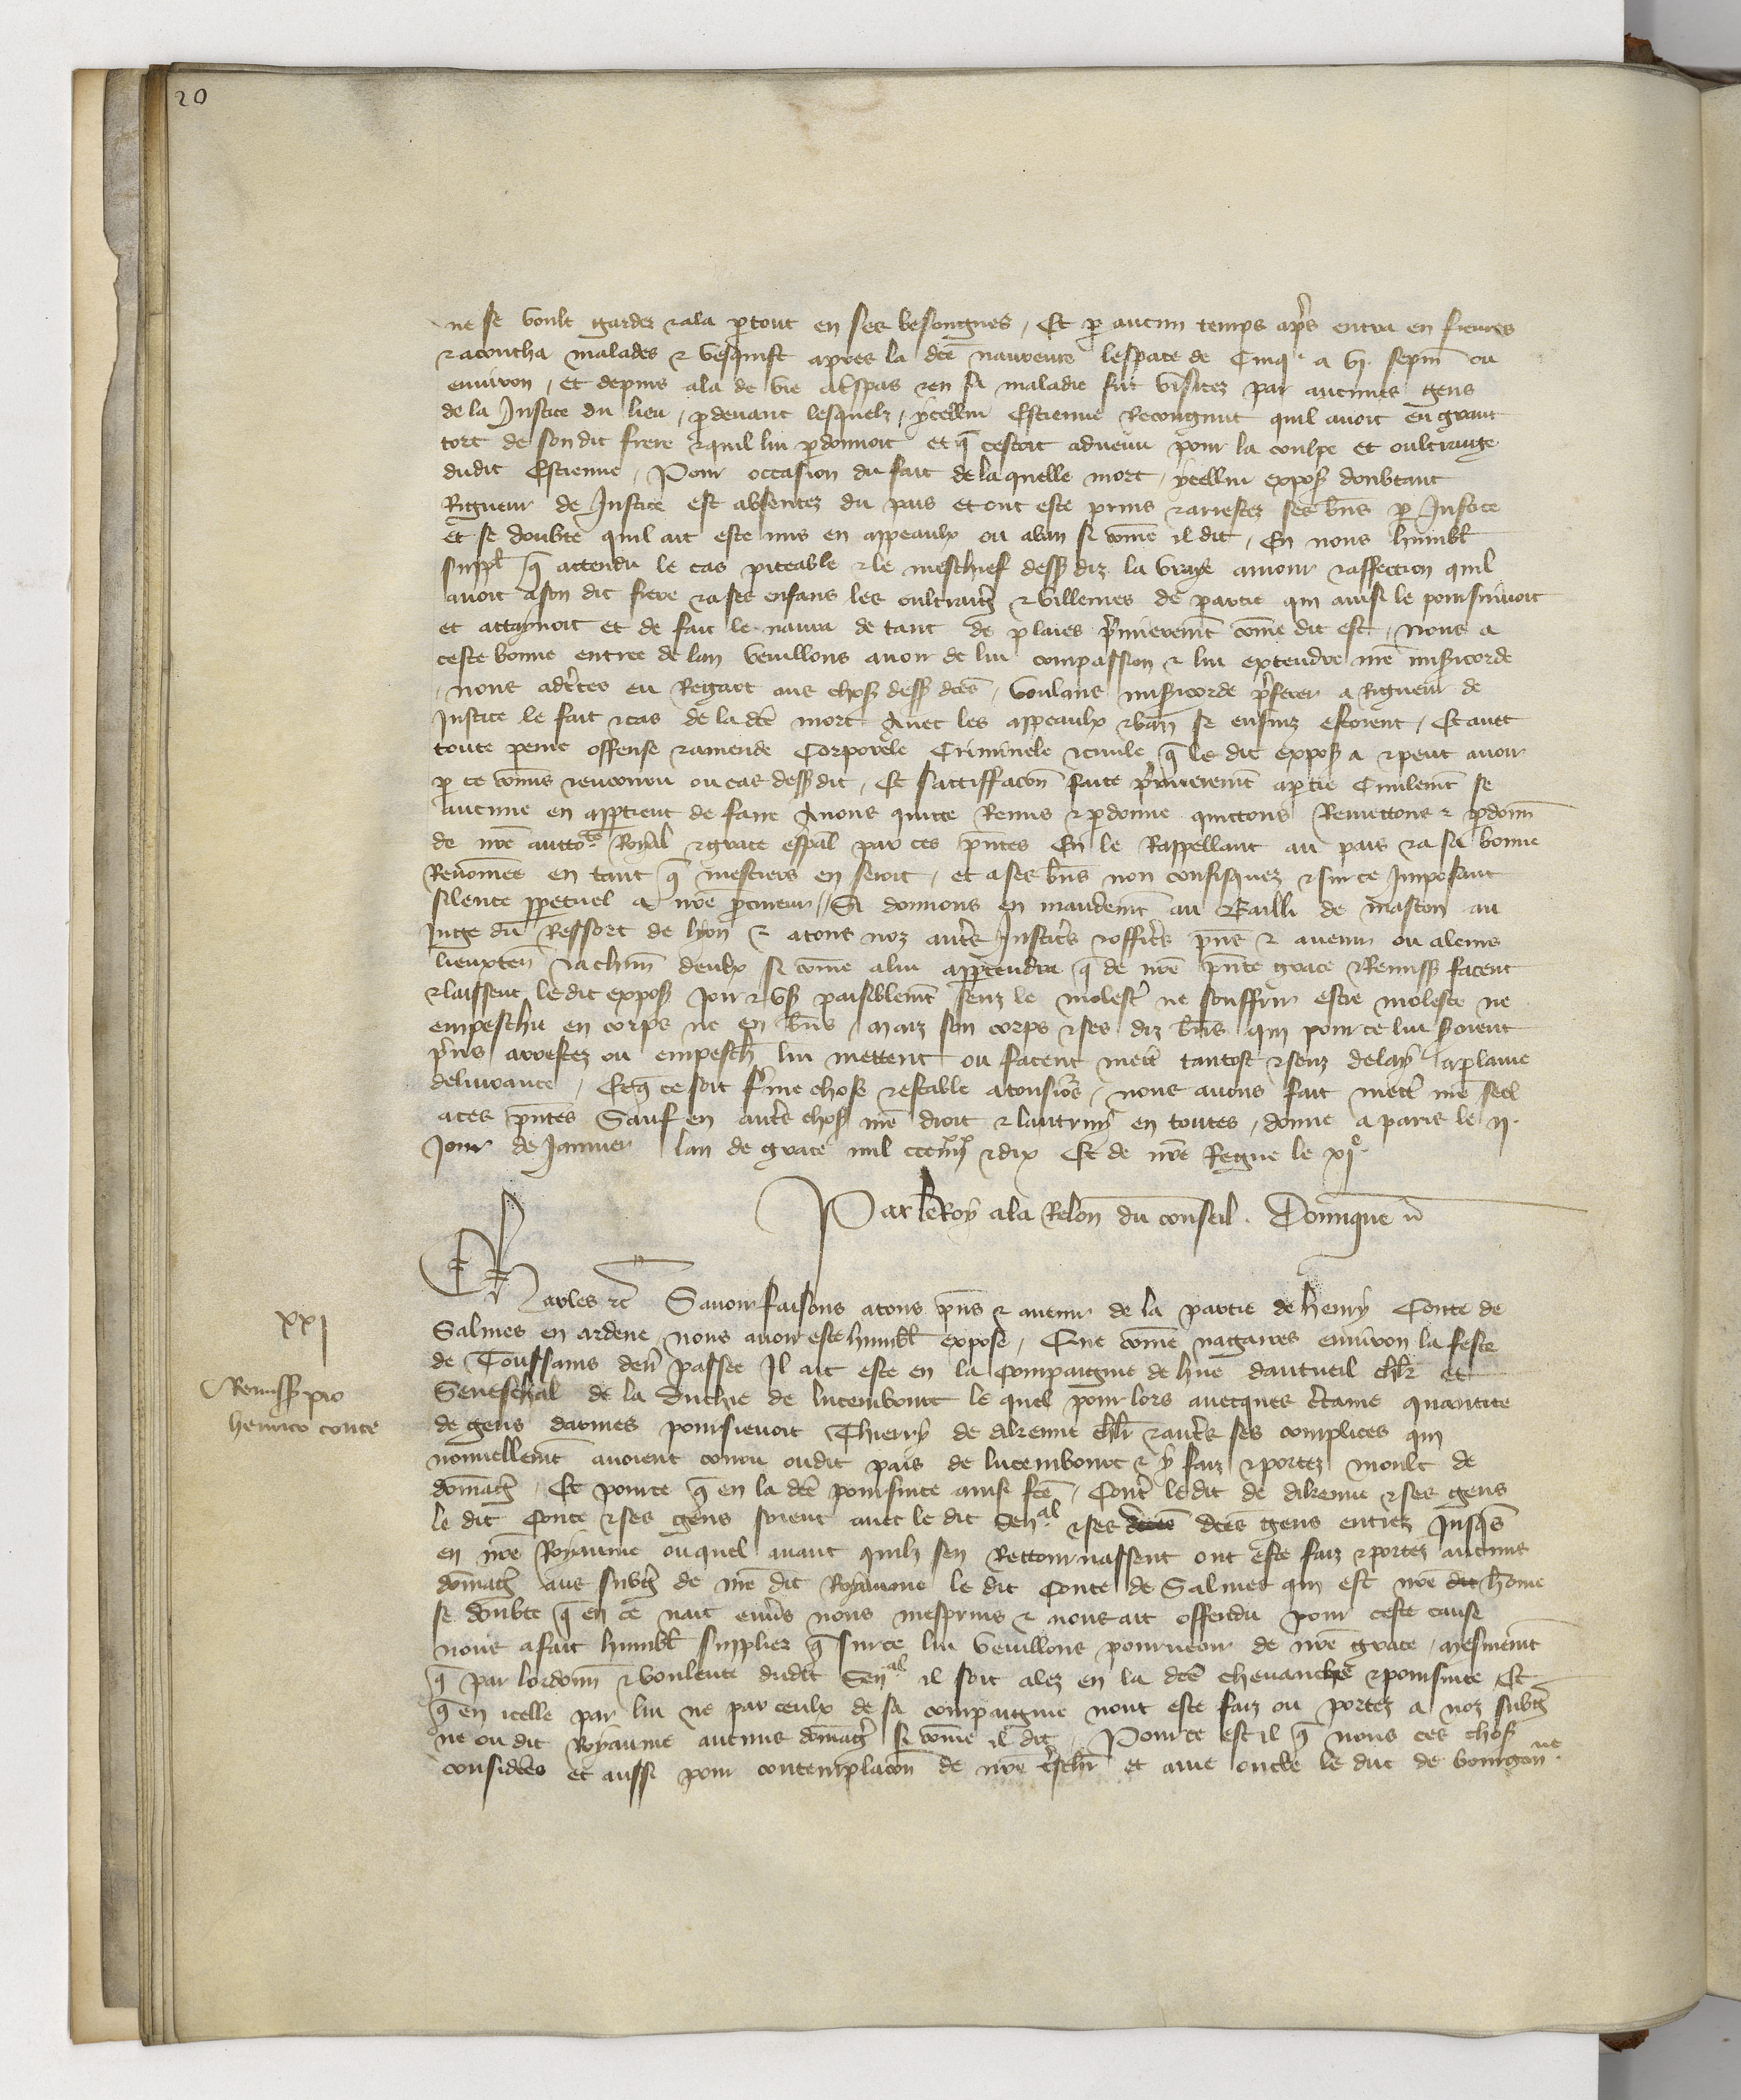 20
ne se voult garder & ala p tout en ses besongnes / Et p aucun temps apřs entra en fieures
& acoucha malades & vesquist apres la dcē naureure lespace de Cinq a vj. sepm̄ ou
enuiron / et depuis ala de vie a trespas & en sa maladie fut visitez par aucunes gens
de la Justice du lieu / p deuant lesquelz / ycellui Estienne Recongnut quil auoit eu grant
tort de son dit frere & quil lui pdonnoit et q̄ cestoit aduenu pour la coulpe et oultrage
dudit Estienne / Pour occasion du fait de la quelle mort / ycellui expos̄ doubtant
Rigueur de Justice est absentez du pais et ont este prins & arrestez ses bn̄s p Justice
et se doubte quil ait este mis en appeaulx ou a ban si com̄e il dit / En nous humbl̄
suppl̄ q̄ attendu le cas piteable & le meschief dess diz la vraye amour & affection quil
auoit a son dit frere & a ses enfans les oultraiḡ & villenies de partie qui ainsi le poursuiuoit
et attaynoit et de fait le naura de tant de plaies p̄mierem̄t com̄e dit est / Nous a
ceste bonne entree de lan vueillons auoir de lui compassion & lui extendre nr̄e mis̄icorde
/ nous adc̄tes eu Regart aus chos̄ dess dc̄es / voulans mis̄icorde p̄ferer a Rigueur de
Justice le fait & cas de la dcē mort Auec les appeaulx & ban se ensuiz estoient / Et auec
toute peine offense & amende Corporele Criminele & ciuile q̄ le dit expos̄ a & peut auoir
p ce com̄is & encouru ou cas dess dit / Et satiffacōn faite p̄mierem̄t a ptie Ciuilem̄t se
aucune en apptient de faire Auons quitte Remis & pdonne quittons Remettons & pdonn̄
de nr̄e auctote Royal & grace esp̄al par ces pn̄tes En le Rappellant au pais & a sa bonne
Renom̄ee en tant q̄ mestiers en seroit / et a ses bn̄s non confisquez & sur ce Imposant
silence ppetuel a nr̄e pcureur // Si donnons en mandem̄t au Bailli de mascon au
Juge du Ressort de lyon & a tous noz autr̄s Justic̄rs & offic̄rs pn̄s & auenir ou a leurs
lieuxten̄ & a chun̄ deulx si com̄e a lui apptendra q̄ de nr̄e pn̄te grace & Remiss̄ facent
& laissent le dit expos̄ Joir & vs̄ paisiblem̄t senz le molest̄ ne souffrir estre moleste ne
empeschie en corps ne en bn̄s / maiz son corps & ses diz bn̄s qui pour ce lui s̄oient
p̄ns arrestez ou empesch̄ lui mettent ou facent mett̄ tantost & senz delay a plaine
deliurance / Et q̄ ce soit f̄me chose & estable a tousiōs / nous auons fait mett̄ nr̄e seel
a ces pn̄tes Sauf en autr̄s chos̄ nr̄e droit & lautruy en toutes / donne a paris le ij.
Jour de Januier lan de grace mil ccciiijxx & dix Et de nr̄e Regne le xje.
Par le Roy a la Relōn du conseil . Dominique n̄
Charles &c̄ Sauoir faisons a tous pn̄s & auenir de la partie de henry Conte de
Salmes en ardene nous auoir este humbl̄ expose / Que com̄e nagaires enuiron la feste
de Toussains den̄ passee Il ait este en la compaignie de hue dautueil chl̄r et
Seneschal de la duchie de lucembourc le quel pour lors auecques c̄taine quantite
de gens darmes poursieuoit Thierry de dikenne chl̄r & autr̄s ses complices qui
nouuellem̄t auoient couru oudit pais de lucembourc & y faiz & portez moult de
dom̄aḡ / Et pour ce q̄ en la dcē poursuite ainsi fc̄e / Cont̄ le dit de dikenne & ses gens
le dit Conte & ses gens soient auec le dit Senal & ses dc̄es dc̄es gens entrez Jusq̄s
en nr̄e Royaume ou quel auant quilz sen Rettournassent ont este faiz & portez aucuns
dom̄aḡ aus subḡ de nr̄e dit Royaume le dit Conte de Salmes qui est nr̄e dit hom̄e
se doubte q̄ en ce nait enūs nous mesprins & nous ait offendu pour ceste cause
nous a fait humbl̄ supplier q̄ sur ce lui vueillons pourueoir de nr̄e grace / mesmem̄t
q̄ par lordonn̄ & voulente dudit Senal il soit alez en la dcē cheuauchee & poursuite Et
q̄ en icelle par lui ne par ceulx de sa compaignie nont este faiz ou portez a noz subḡ
ne ou dit Royaume aucuns dom̄aḡ si com̄e il dit / Pour ce est il q̄ nous ces chos̄
considerees et aussi pour contemplacōn de nr̄e t̄schr̄ et ame oncle le duc de bourgon ne
xxj
Remiss̄ pro
henrico conte